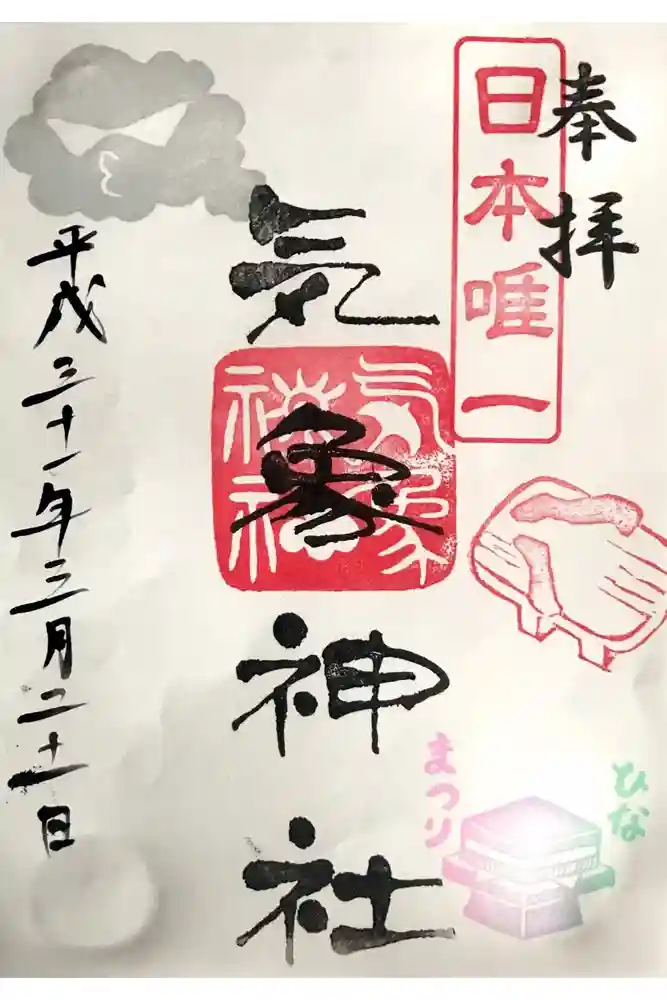 奉拝
日本唯一
気象神社
気象
神社
平成三十一年三月二十一日
ひな
まつり